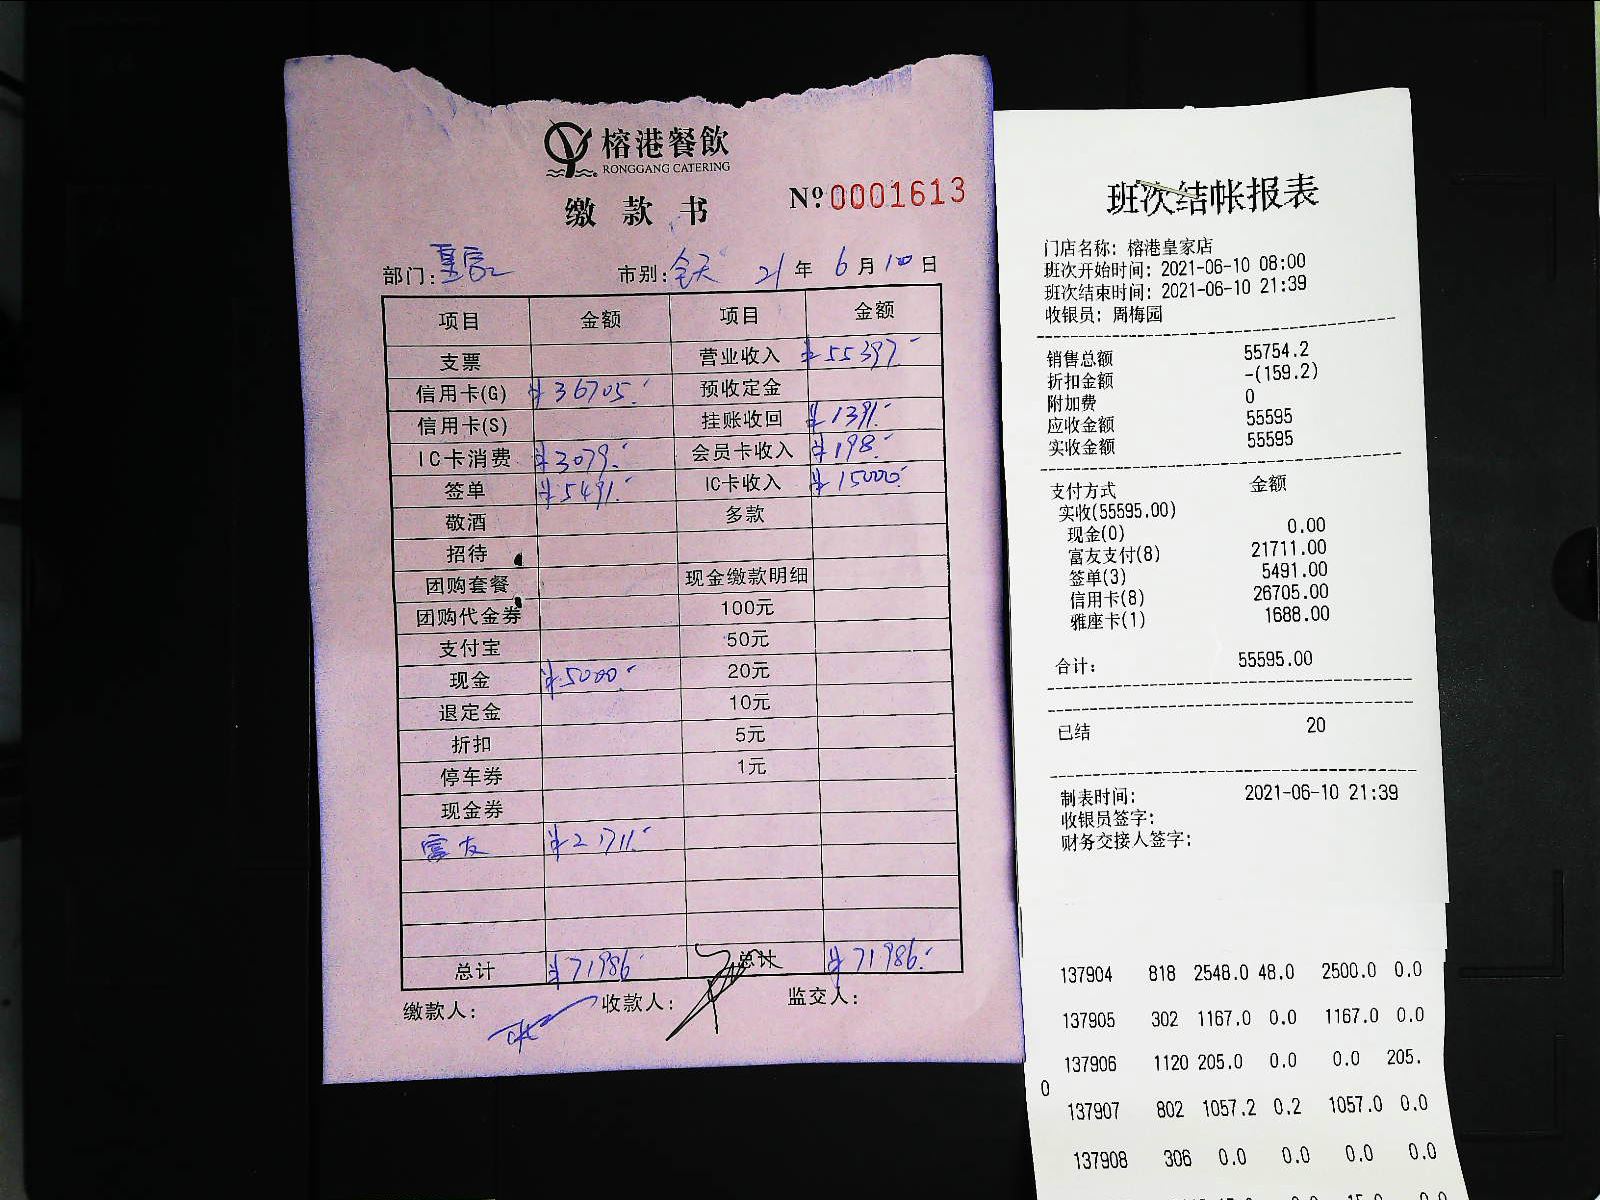 榕港餐飲
RONGGANG CATERING
缴款书
Nº 0001613
部门: 皇家 市别: 全天 21 年 6 月 10 日
项目 金额 项目 金额
支票 营业收入 ¥55397.-
信用卡(G) ¥36705.- 预收定金
信用卡(S) 挂账收回 ¥1391.-
IC卡消费 ¥3079.- 会员卡收入 ¥198.-
签单 ¥5491.- IC卡收入 ¥15000.-
敬酒 多款
招待
团购套餐 现金缴款明细
团购代金券 100元
支付宝 50元
现金 ¥5000.- 20元
退定金 10元
折扣 5元
停车券 1元
现金券
富友 ¥21711.-
总计 ¥71986.- 总计 ¥71986.-
缴款人: 收款人: 监交人:
班次结帐报表
门店名称: 榕港皇家店
班次开始时间: 2021-06-10 08:00
班次结束时间: 2021-06-10 21:39
收银员: 周梅园
销售总额 55754.2
折扣金额 -(159.2)
附加费 0
应收金额 55595
实收金额 55595
支付方式 金额
实收(55595.00)
现金(0) 0.00
富友支付(8) 21711.00
签单(3) 5491.00
信用卡(8) 26705.00
雅座卡(1) 1688.00
合计: 55595.00
已结 20
制表时间: 2021-06-10 21:39
收银员签字:
财务交接人签字:
137904 818 2548.0 48.0 2500.0 0.0
137905 302 1167.0 0.0 1167.0 0.0
137906 1120 205.0 0.0 0.0 205.
0
137907 802 1057.2 0.2 1057.0 0.0
137908 306 0.0 0.0 0.0 0.0